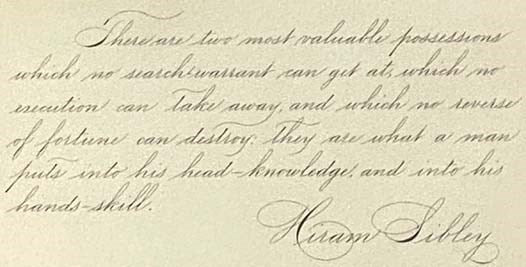 There are two most valuable possessions
which no search-warrant can get at, which no
execution can take away, and which no reverse
of fortune can destroy; they are what a man
puts into his head-knowledge, and into his
hands-skill.
Hiram Sibley